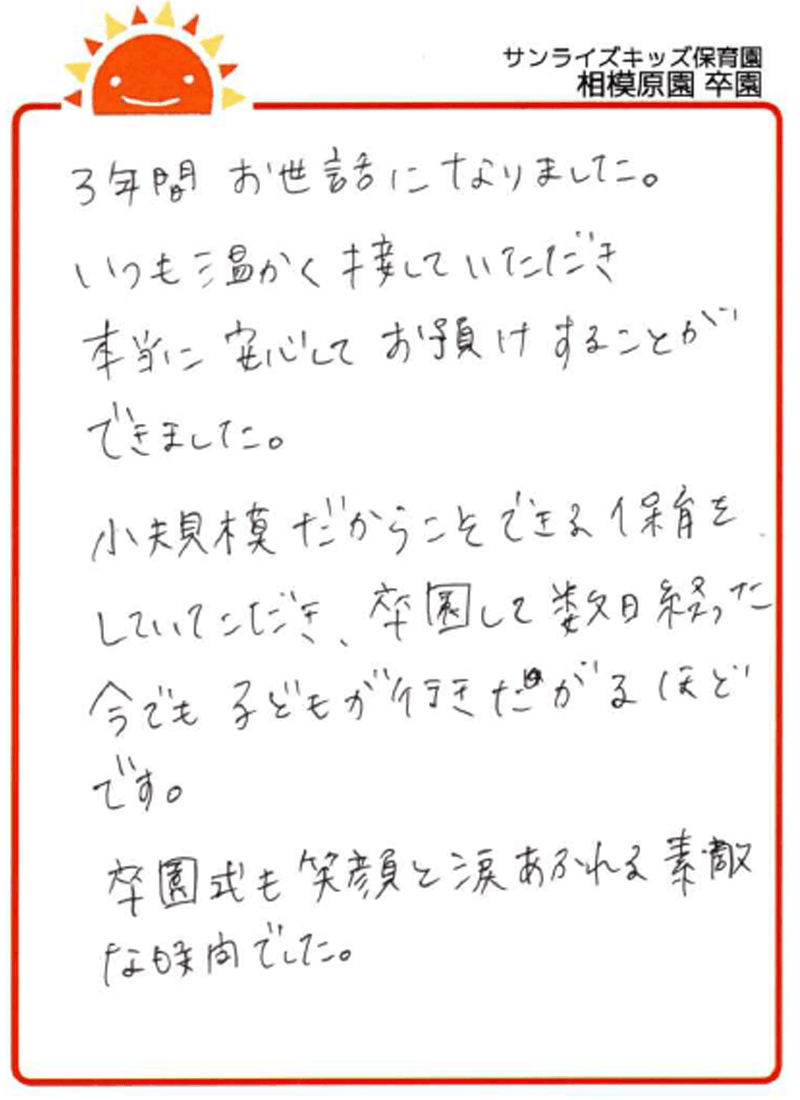 サンライズキッズ保育園
相模原園 卒園
3年間 お世話になりました。
いつも温かく接していただき
本当に安心してお預けすることが
できました。
小規模だからこそできる保育を
していただき、卒園して数日経った
今でも子どもが行きたがるほど
です。
卒園式も笑顔と涙あふれる素敵
な時間でした。